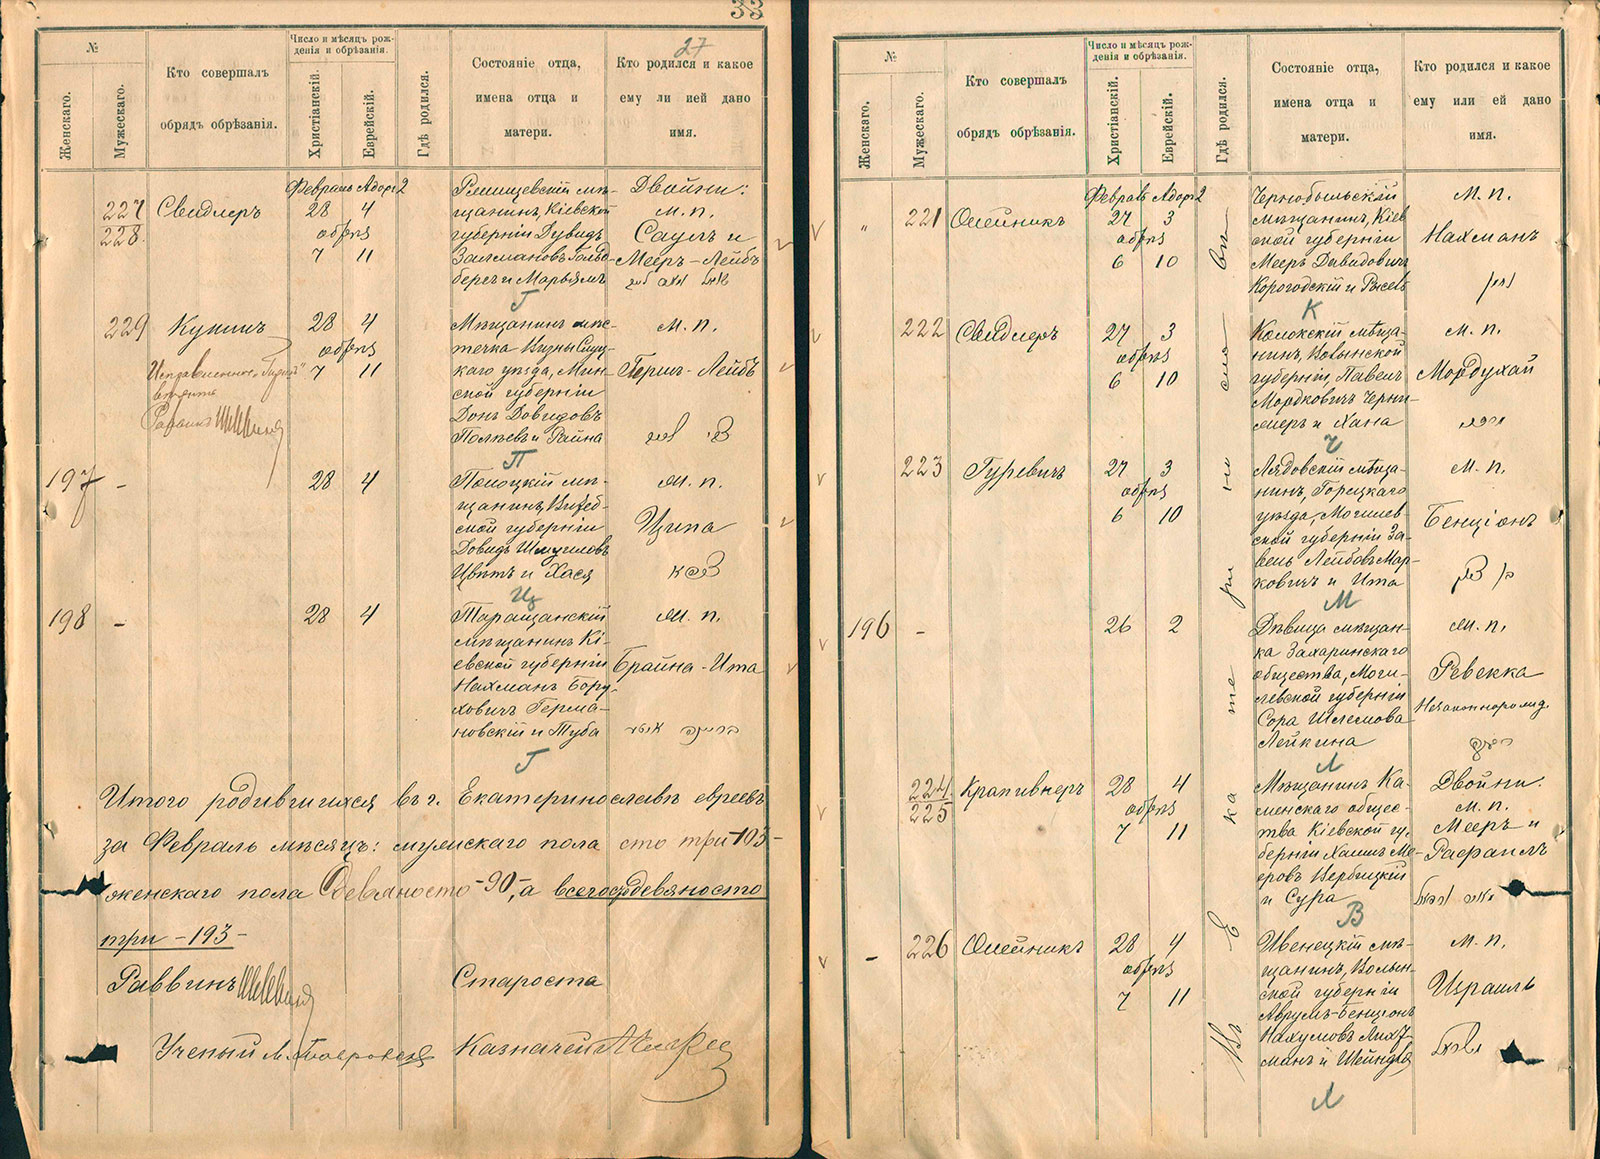 33
27
№
Женскаго.
Мужескаго.
Кто совершалъ
обрядъ обрѣзанія.
Число и мѣсяцъ рож-
денія и обрѣзанія.
Христіанскій.
Еврейскій.
Гдѣ родился.
Состояніе отца,
имена отца и
матери.
Кто родился и какое
ему ли ией дано
имя.
227
228
Свидлеръ
Февраль Адоръ 2
28 4
обрѣз
7 11
Ржищевскій мѣ-
щанинъ, Кіевской
губерніи Дувидъ
Залмановъ Гольд-
бергъ и Марьямъ
Г
Двойни:
м. п.
Саулъ и
Мееръ-Лейбъ
229
Купинъ
28 4
обрѣз
7 11
Раввинъ
Мѣщанинъ мѣс-
течка Визны Слуц-
каго уѣзда, Мин-
ской губерніи
Донъ Довидовъ
и Райна
П
м. п.
Гершъ-Лейбъ
197 -
28 4
Полоцкій мѣ-
щанинъ, Витеб-
ской губерніи
Довидъ Шмуиловъ
Цвѣтъ и Хася
Ц
м. п.
Ципа
198 -
28 4
Таращанскій
мѣщанинъ Кі-
евской губерніи
Нахманъ Бору-
ховичъ Герма-
новскій и Туба
Г
м. п.
Брайна-Ита
Итого родившихся въ г. Екатеринославѣ евреевъ
за Февраль мѣсяцъ: мужскаго пола сто три-103-
женскаго пола девяносто-90-, а всего сто девяносто
три -193-
Раввинъ
Староста
Ученый
Казначей
№
Женскаго.
Мужескаго.
Кто совершалъ
обрядъ обрѣзанія.
Число и мѣсяцъ рож-
денія и обрѣзанія.
Христіанскій.
Еврейскій.
Гдѣ родился.
Состояніе отца,
имена отца и
матери.
Кто родился и какое
ему или ей дано
имя.
Въ Екатеринославѣ
" 221
Олейникъ
Февраль Адоръ 2
27 3
обрѣз
6 10
Чернобыльскій
мѣщанинъ, Кіев
ской губерніи
Мееръ Давидовичъ
Корогодскій и Рысель
К
М. п.
Нахманъ
נחמן
222
Свидлеръ
27 3
обрѣз
6 10
мѣща-
нинъ, Волынской
губерніи, Павелъ
Мордковичъ Черни-
и Хана
Ч
м. п.
Мордухай
מרדכי
223
Гуревичъ
27 3
обрѣз
6 10
Лядовскій мѣща-
нинъ, Горецкаго
уѣзда, Могилев
ской губерніи За-
вель Лейбовъ Мар-
ковичъ и Ита
М
м. п.
Бенціонъ
בן ציון
196 -
26 2
Дѣвица мѣщан-
ка Захаринскаго
общества, Моги-
левской губерніи
Сора Шлемова
Лейкина
Л
м. п.
Ревекка
Незаконнорожд.
רבקה
224
225
Крапивнеръ
28 4
обрѣз
7 11
Мѣщанинъ Ка-
менскаго общес-
тва Кіевской гу-
берніи Хаимъ Ме-
еровъ Вербицкій
и Сура
В
Двойни:
м. п.
Мееръ и
Рафаилъ
מאיר רפאל
- 226
Олейникъ
28 4
обрѣз
7 11
Ивенецкій мѣ-
щанинъ, Волын-
ской губерніи
Аврумъ-Бенціонъ
Нахумовъ Лихт-
манъ и Шейндля
Л
м. п.
Израиль
ישראל